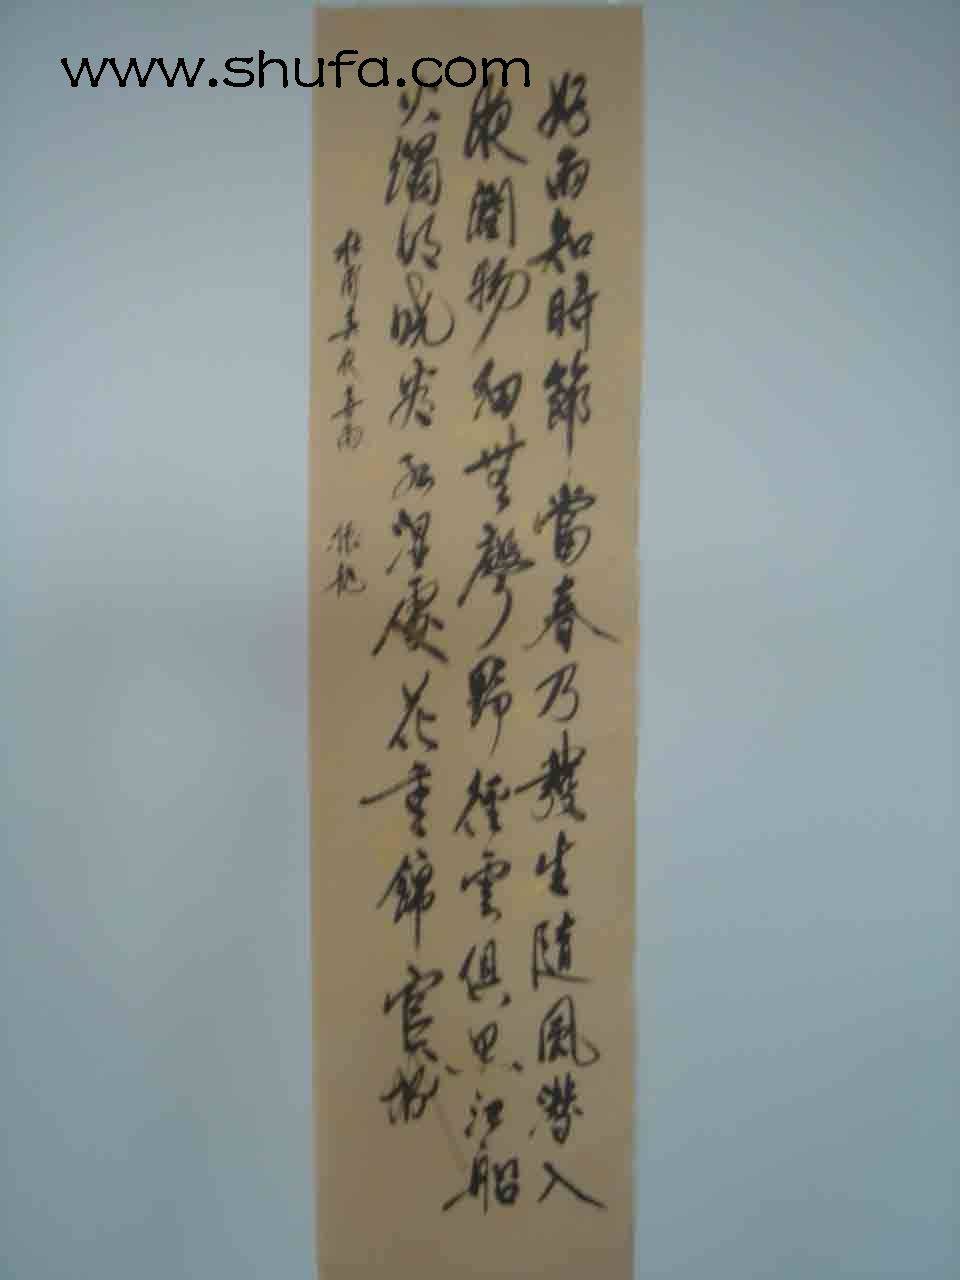 www.shufa.com
好雨知時節當春乃發生随風潜入
夜潤物細無聲野徑雲俱黑江船
火獨明曉看紅濕處花重錦官城
杜甫春夜喜雨